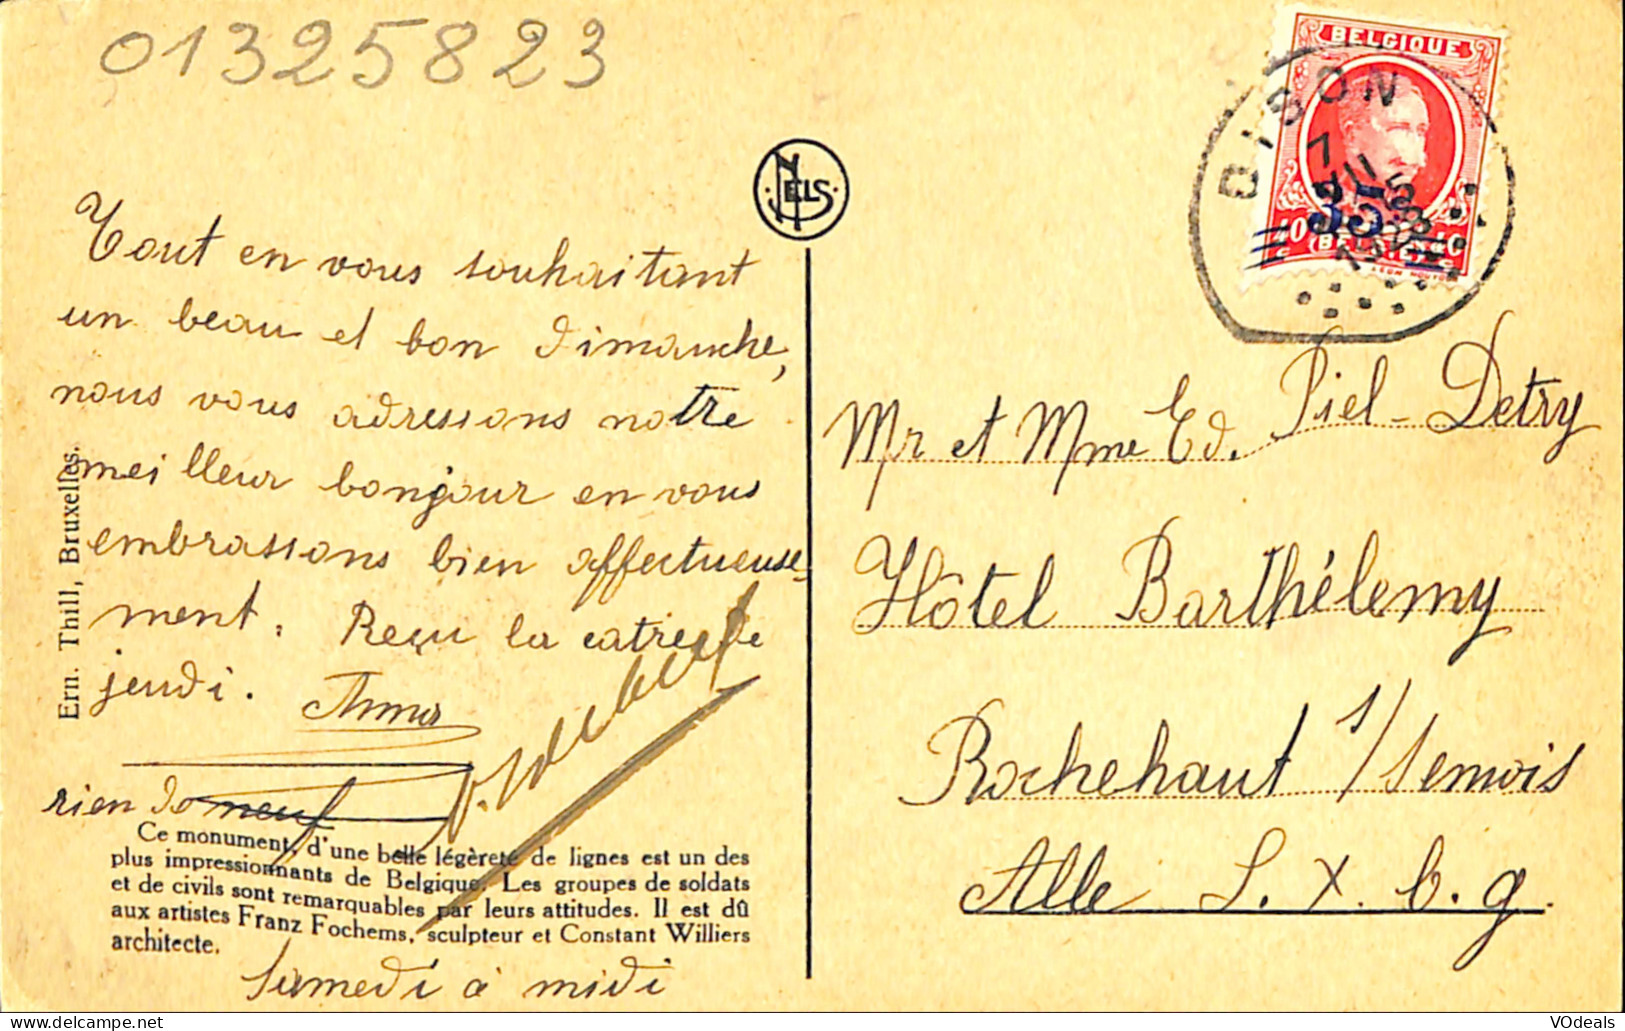 01325823
BELGIQUE
DISON
7
35c
40
BELGIË
NELS
Tout en vous souhaitant
un beau et bon dimanche,
nous vous adressons notre
meilleur bonjour en vous
embrassons bien affectueuse-
ment. Reçu la catre de
jeudi.
Anna
rien do neuf
Ce monument, d'une belle légèreté de lignes est un des
plus impressionnants de Belgique. Les groupes de soldats
et de civils sont remarquables par leurs attitudes. Il est dû
aux artistes Franz Fochems, sculpteur et Constant Williers
architecte.
Samedi à midi
Ern. Thill, Bruxelles.
Mr et Mme Ed. Piel-Detry
Hôtel Barthélemy
Rochehaut s/Semois
Alle L. x. b. g.
VOdeals